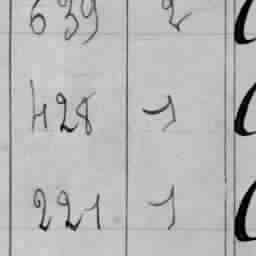 639 2
428 1
221 1